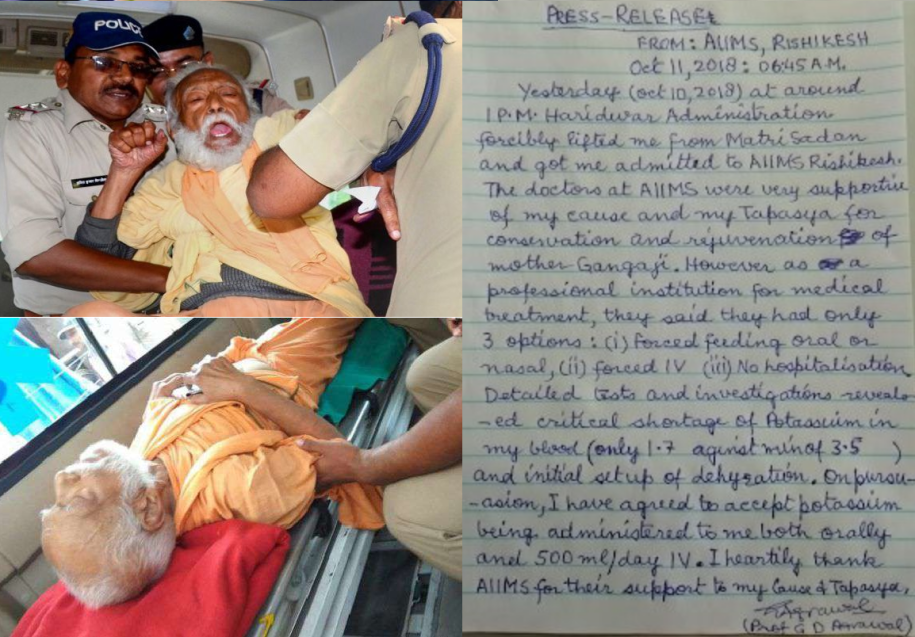 POLICE
PRESS-RELEASE
FROM: AIIMS, RISHIKESH
Oct 11, 2018: 06:45 A.M.
Yesterday (oct 10, 2018) at around
1 P.M. Haridwar Administration
forcibly lifted me from Matri Sadan
and got me admitted to AIIMS Rishikesh.
The doctors at AIIMS were very supportive
of my cause and my Tapasya for
conservation and rejuvenation of
mother Gangaji. However as a
professional institution for medical
treatment, they said they had only
3 options: (i) Forced feeding oral or
nasal, (ii) forced IV (iii) No hospitalisation.
Detailed tests and investigations reveal-
-ed critical shortage of Potassium in
my blood (only 1.7 against min of 3.5 )
and initial set up of dehydration. On pursu-
-asion, I have agreed to accept potassium
being administered to me both orally
and 500 ml/day IV. I heartily thank
AIIMS for their support to my Cause & Tapasya.
Agrawal
(Prof G D Agrawal)